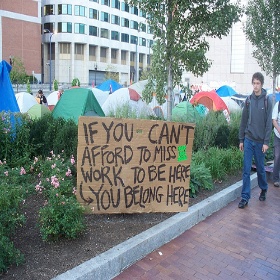 IF YOU CAN'T
AFFORD TO MISS
WORK TO BE HERE
YOU BELONG HERE